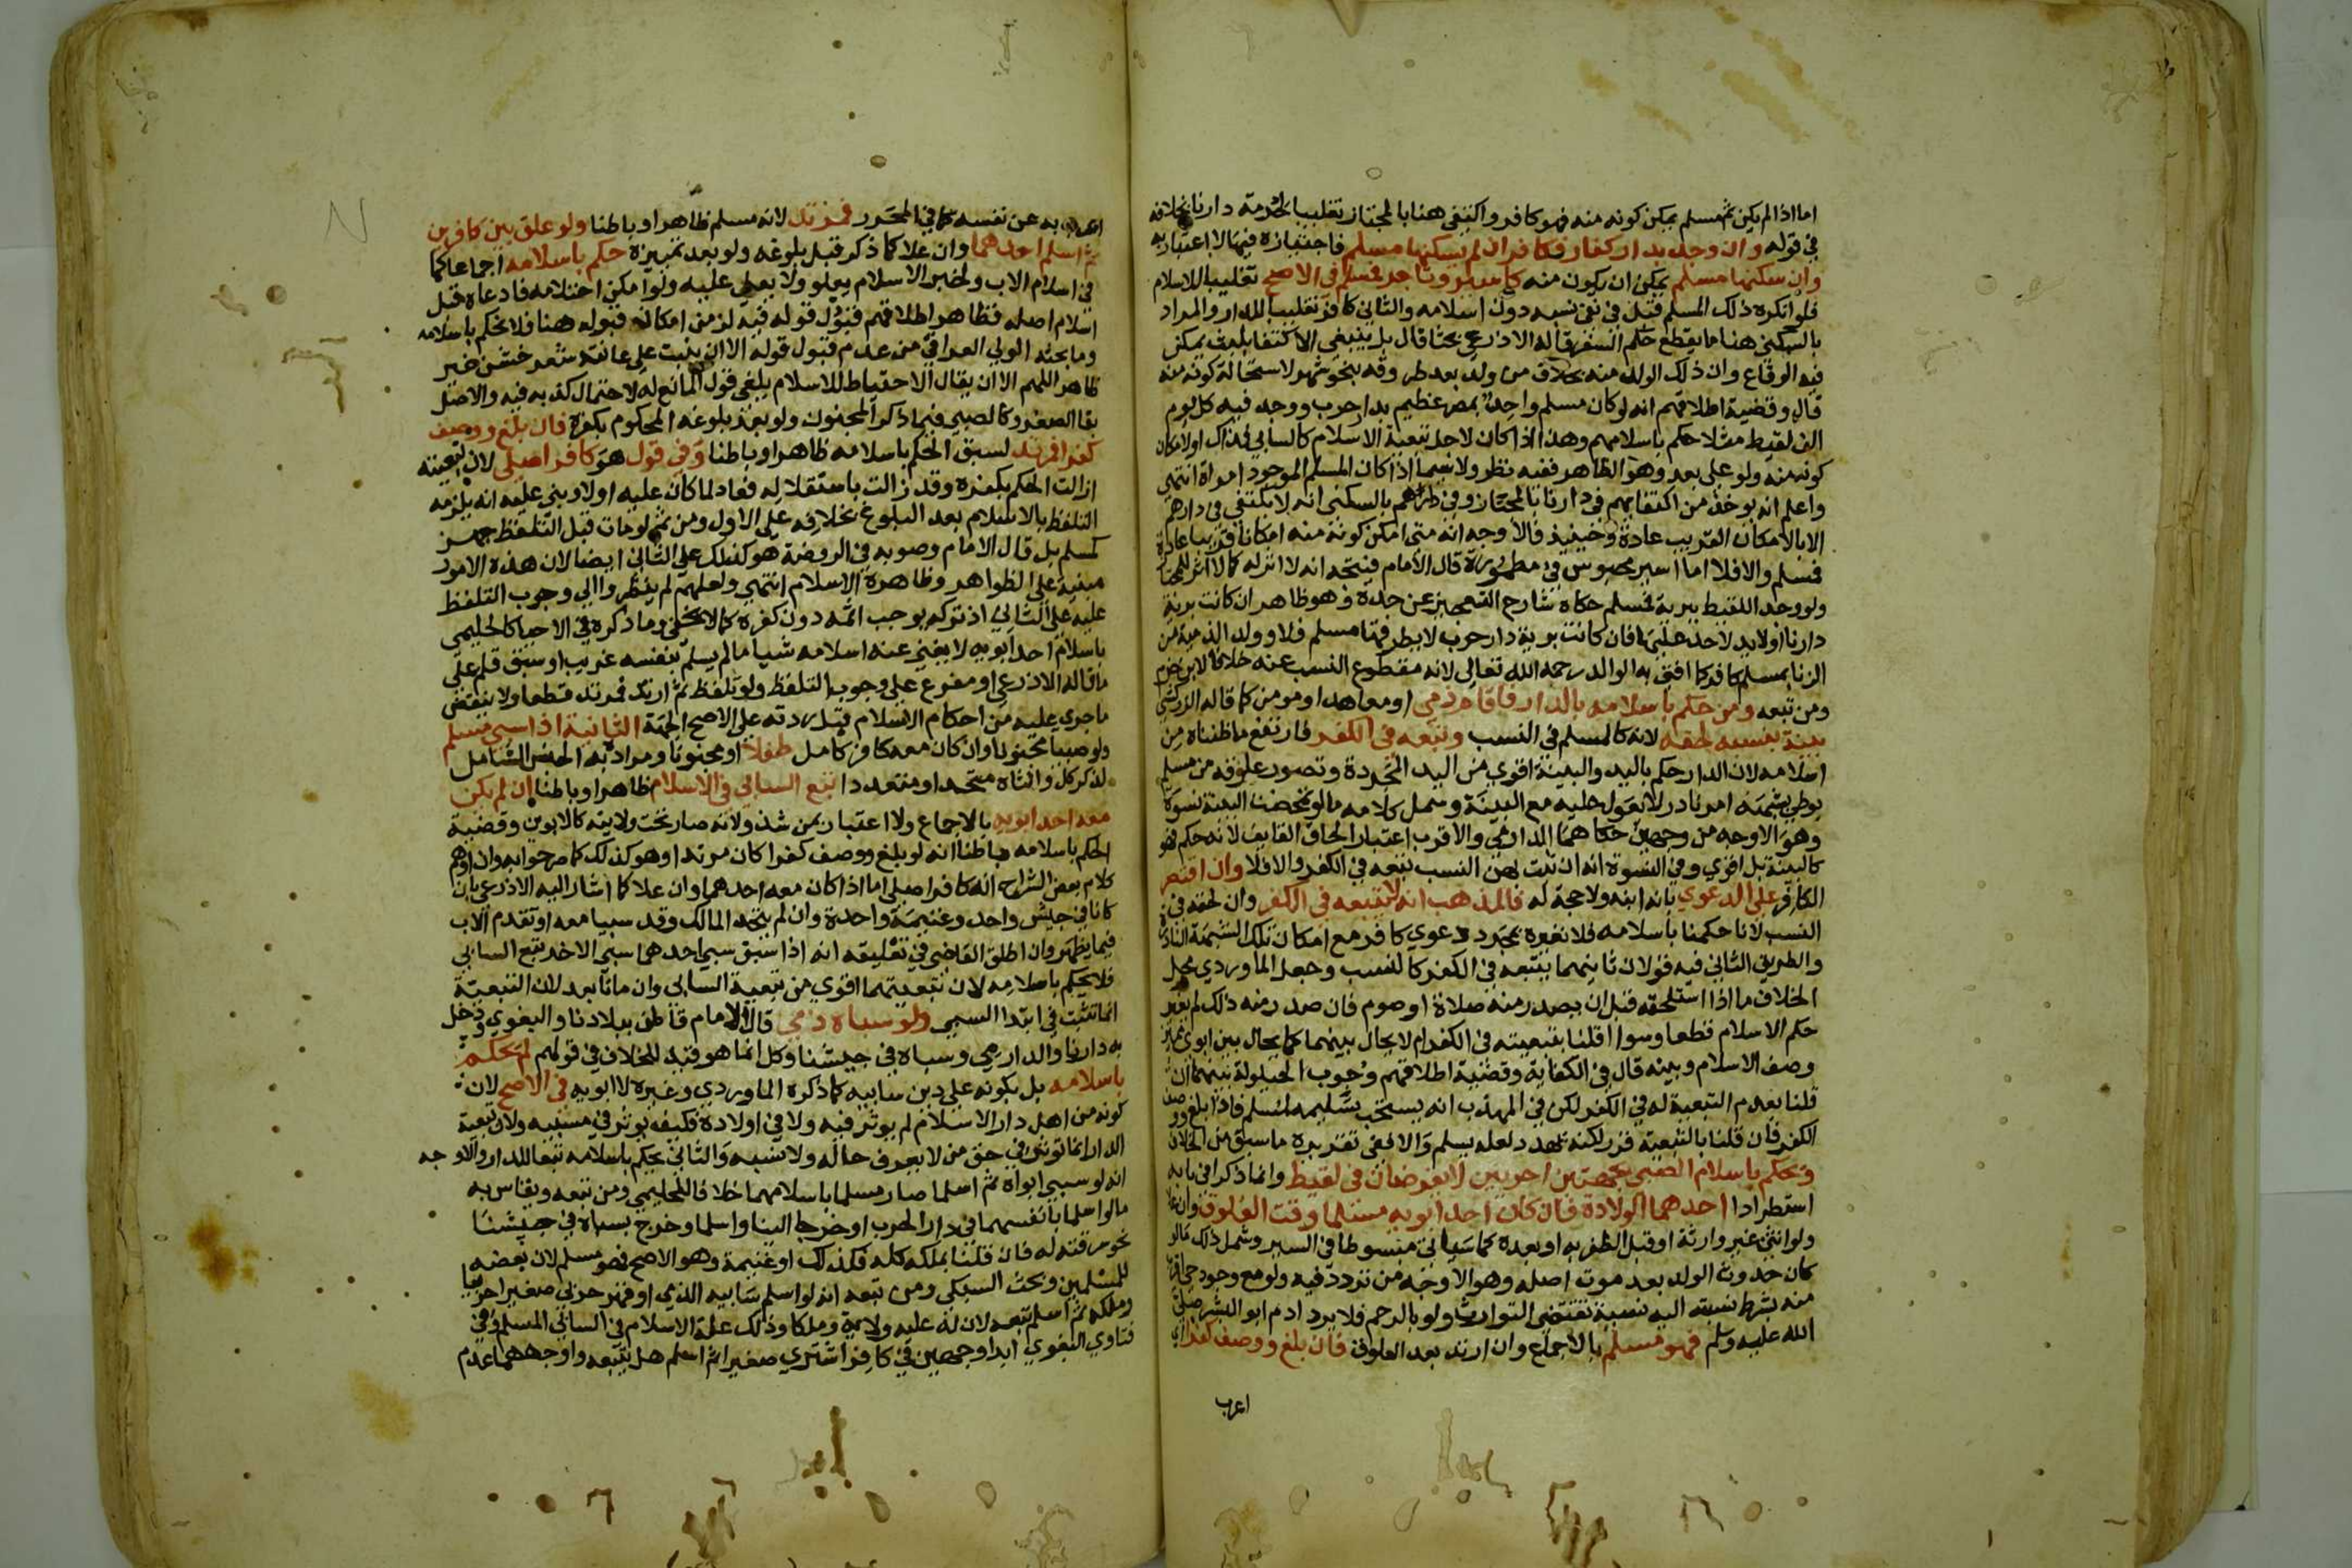 اما اذا لم يكن ثم مسلم يمكن كونه منه فهو كافر واكتفى هنا بالمجتاز تغليبا لحرمة دارنا بخلافه
في قوله وان وجد بدار كفار فكافر ان لم يسكنها مسلم فاجتيازه فيها لا اعتبار به
وان سكنها مسلم يمكن ان يكون منه كاسير وتاجر فمسلم في الاصح تغليبا للاسلام
فلو انكره ذلك المسلم قبل في نفي نسبه دون اسلامه والثاني كافر تغليبا للدار والمراد
بالسكنى هنا ما يقطع حكم السفر قاله الاذرعي بحثا قال بل ينبغي الاكتفا بلبث يمكن
فيه الوقاع وان ذلك الولد منه بخلاف من ولد بعد طروقه بنحو شهر لاستحالة كونه منه
قال وقضية اطلاقهم انه لو كان مسلم واحد بمصر عظيم بدار حرب ووجد فيه كل يوم
الف لقيط مثلا حكم باسلامهم وهذا اذا كان لاجل تبعية الاسلام كالسابي فذاك او لامكان
كونه منه ولو على بعد وهو الظاهر ففيه نظر ولا سيما اذا كان المسلم الموجود امراة انتهى
واعلم انه يوخذ من اكتفايهم في دارنا بالمجتاز وفي دارهم بالسكنى انه لا يكتفي في دارهم
الا بالامكان القريب عادة وحينيذ فالاوجه انه متى امكن كونه منه امكانا قريبا عادة
فمسلم والا فلا اما اسير محبوس في مطمورة قال الامام فيتجه انه لا اثر له كما لا اثر للمجتاز
ولو وجد اللقيط ببرية فمسلم حكاه شارح التعجيز عن جده وهو ظاهر ان كانت برية
دارنا او لا يد لاحد عليها فان كانت برية دار حرب لا يطرقها مسلم فلا وولد الذمية من
الزنا بمسلم كافر كما افتى به الوالد رحمه الله تعالى لانه مقطوع النسب عنه خلافا لابن حزم
ومن تبعه ومن حكم باسلامه بالدار فاقام ذمي او معاهد او مومن كما قاله الزركشي
بينة بنسبه لحقه لانه كالمسلم في النسب وتبعه في الكفر فارتفع ما ظنناه من
اسلامه لان الدار حكم باليد والبينة اقوى من اليد المجردة وتصور علوقه من مسلم
بوطي بشبهة امر نادر لا يعول عليه مع البينة وشمل كلامه ما لو تمحضت البينة نسوة
وهو الاوجه من وجهين حكاهما الدارمي والاقرب اعتبار الحاق القايف لانه حكم فهو
كالبينة بل اقوى وفي النسوة انه ان ثبت بهن النسب تبعه في الكفر والا فلا وان اقتصر
الكافر على الدعوى بانه ابنه ولا حجة له فالمذهب انه لا يتبعه في الكفر وان لحقه في
النسب لانا حكمنا باسلامه فلا نغيره بمجرد دعوى كافر مع امكان تلك الشبهة النادرة
والطريق الثاني فيه قولان ثانيهما يتبعه في الكفر كالنسب وجعل الماوردي محل
الخلاف ما اذا استلحقه قبل ان يصدر منه صلاة او صوم فان صدر منه ذلك لم يغير
حكم الاسلام قطعا وسوا اقلنا بتبعيته في الكفر ام لا يحال بينهما كما يحال بين ابوي مميز
وصف الاسلام وبينه قال في الكفاية وقضية اطلاقهم وجوب الحيلولة بينهما ان
قلنا بعدم التبعية له في الكفر لكن في المهذب انه يستحب تسليمه لمسلم فاذا بلغ ووصف
الكفر فان قلنا بالتبعية قرر لكنه يهدد لعله يسلم والا ففي تقريره ما سبق من الخلاف
ويحكم باسلام الصبي بجهتين اخريين لا يفرضان في لقيط وانما ذكرا في بابه
استطرادا احدهما الولادة فان كان احد ابويه مسلما وقت العلوق وان علا
ولو انثى غير وارثة او قبل الظفر به او بعده كما سياتي مبسوطا في السير وشمل ذلك ما لو
كان حدوث الولد بعد موت اصله وهو الاوجه من تردد فيه ولو مع وجود حي اقرب
منه بشرط نسبته اليه نسبة تقتضي التوارث ولو بالرحم فلا يرد ادم ابو البشر صلى
الله عليه وسلم فهو مسلم بالاجماع وان ارتد بعد العلوق فان بلغ ووصف كفرا اي
اعرب
اعرب به عن نفسه كما في المحرر فمرتد لانه مسلم ظاهرا وباطنا ولو علق بين كافرين
ثم اسلم احدهما وان علا كما ذكر قبل بلوغه ولو بعد تمييزه حكم باسلامه اجماعا كما
في اسلام الاب ولخبر الاسلام يعلو ولا يعلى عليه ولو امكن احتلامه فادعاه قبل
اسلام اصله فظاهر اطلاقهم قبول قوله فيه لزمن امكانه قبوله هنا فلا يحكم باسلامه
وما بحثه الولي العراقي من عدم قبول قوله الا ان ينبت على عانته شعر خشن غير
ظاهر اللهم الا ان يقال الاحتياط للاسلام يلغي قوله المانع له لاحتمال كذبه فيه والاصل
بقا الصغر وكالصبي فيما ذكر المجنون ولو بعد بلوغه المحكوم بكفره فان بلغ ووصف
كفرا فمرتد لسبق الحكم باسلامه ظاهرا وباطنا وفي قول هو كافر اصلي لان تبعيته
ازالت الحكم بكفره وقد زالت باستقلاله فعاد لما كان عليه اولا وبني عليه انه يلزمه
التلفظ بالاسلام بعد البلوغ بخلافه على الاول ومن ثم لو مات قبل التلفظ جهز
كمسلم بل قال الامام وصوبه في الروضة هو كذلك على الثاني ايضا لان هذه الامور
مبنية على الظواهر وظاهره الاسلام انتهى ولعلهم لم ينظروا الى وجوب التلفظ
عليه على الثاني اذ تركه يوجب اثمه دون كفره كما لا يخفى وما ذكره في الاحيا كالحليمي
باسلام احد ابويه لا يغني عنه اسلامه شيا ما لم يسلم بنفسه غريب او سبق قلم على
ما قاله الاذرعي او مفرع على وجوب التلفظ ولو تلفظ ثم ارتد فمرتد قطعا ولا ينقض
ما جرى عليه من احكام الاسلام قبل ردته على الاصح الجهة الثانية اذا سبى مسلم
ولو صبيا مجنونا وان كان معه كافر كامل طفلا او مجنونا ومراده به الجنس الشامل
لذكر كل وانثاه متحدا او متعددا تبع السابي في الاسلام ظاهرا وباطنا ان لم يكن
معه احد ابويه بالاجماع ولا اعتبار بمن شذ ولانه صار تحت ولايته كالابوين وقضية
الحكم باسلامه باطنا انه لو بلغ ووصف كفرا كان مرتدا وهو كذلك كما صرحوا به وان اوهم
كلام بعض الشراح انه كافر اصلي اما اذا كان معه احدهما وان علا كما اشار اليه الاذرعي بان
كانا في جيش واحد وغنيمة واحدة وان لم يتحد المالك وقد سبيا معه او تقدم الاب
فيما يظهر وان اطلق القاضي في تعليقه انه اذا سبق سبي احدهما سبي الاخر تبع السابي
فلا يحكم باسلامه لان تبعيتهما اقوى من تبعية السابي وان ماتا بعد لان التبعية
انما تثبت في ابتدا السبي ولو سباه ذمي قال الامام قاطن ببلادنا والبغوي ودخل
به دارنا والدارمي وسباه في جيشنا وكل انما هو قيد للخلاف في قولهم لم يحكم
باسلامه بل بكونه على دين سابيه كما ذكره الماوردي وغيره لا ابويه في الاصح لان
كونه من اهل دار الاسلام لم يوثر فيه ولا في اولاده فكيف يوثر في مسبيه ولان تبعية
الدار انما توثر في حق من لا يعرف حاله ولا نسبه والثاني يحكم باسلامه تبعا للدار والاوجه
انه لو سبي ابواه ثم اسلما صار مسلما باسلامهما خلافا للحليمي ومن تبعه ويقاس به
ما لو اسلما بانفسهما في دار الحرب او خرجا الينا واسلما وخرج بسباه في جيشنا
نحو سرقته له فان قلنا بملكه كله فكذلك او غنيمة وهو الاصح فهو مسلم لان بعضه
للمسلمين وبحث السبكي ومن تبعه انه لو اسلم سابيه الذمي او قهر حربي صغيرا حربيا
وملكه ثم اسلم تبعه لان له عليه ولاية وملكا وذلك علة الاسلام في السابي المسلم وفي
فتاوي البغوي ابدا وجهين في كافر اشترى صغيرا ثم اسلم هل يتبعه واوجههما عدم